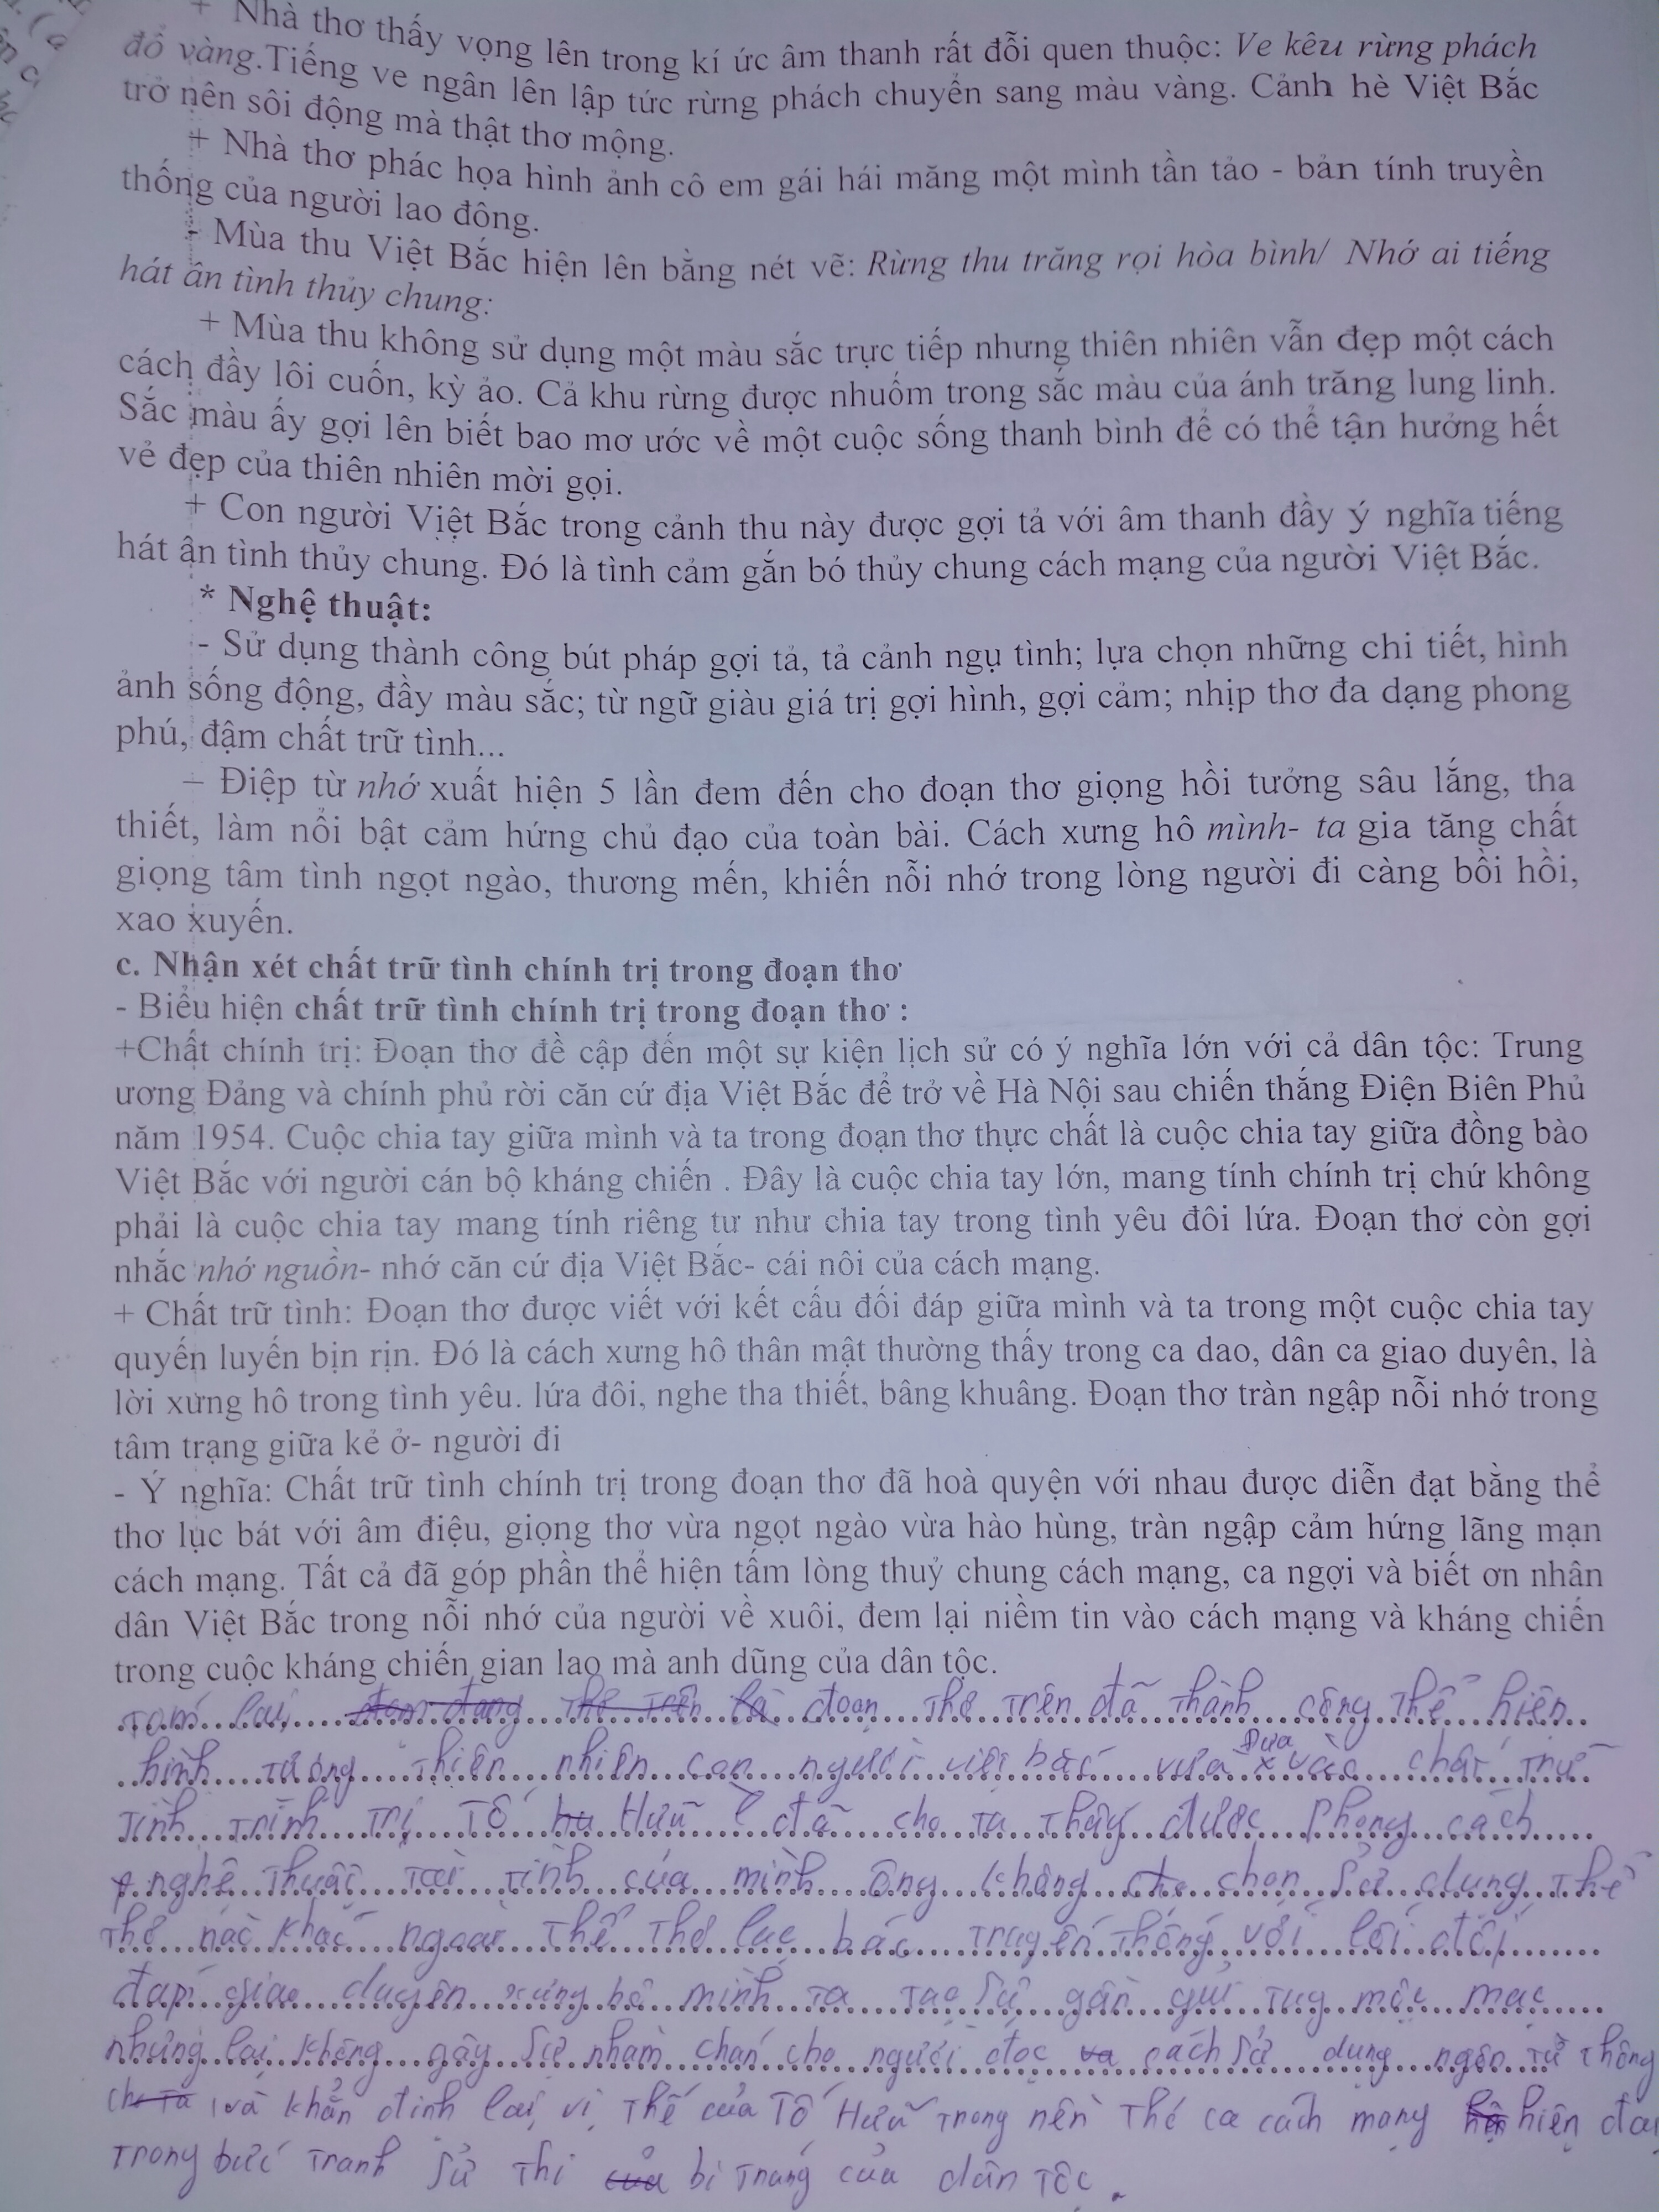 + Nhà thơ thấy vọng lên trong kí ức âm thanh rất đỗi quen thuộc: Ve kêu rừng phách
đổ vàng.Tiếng ve ngân lên lập tức rừng phách chuyển sang màu vàng. Cảnh hè Việt Bắc
trở nên sôi động mà thật thơ mộng.
+ Nhà thơ phác họa hình ảnh cô em gái hái măng một mình tần tảo - bản tính truyền
thống của người lao đông.
- Mùa thu Việt Bắc hiện lên bằng nét vẽ: Rừng thu trăng rọi hòa bình/ Nhớ ai tiếng
hát ân tình thủy chung:
+ Mùa thu không sử dụng một màu sắc trực tiếp nhưng thiên nhiên vẫn đẹp một cách
cách đầy lôi cuốn, kỳ ảo. Cả khu rừng được nhuốm trong sắc màu của ánh trăng lung linh.
Sắc màu ấy gợi lên biết bao mơ ước về một cuộc sống thanh bình để có thể tận hưởng hết
vẻ đẹp của thiên nhiên mời gọi.
+ Con người Việt Bắc trong cảnh thu này được gợi tả với âm thanh đầy ý nghĩa tiếng
hát ân tình thủy chung. Đó là tình cảm gắn bó thủy chung cách mạng của người Việt Bắc.
* Nghệ thuật:
- Sử dụng thành công bút pháp gợi tả, tả cảnh ngụ tình; lựa chọn những chi tiết, hình
ảnh sống động, đầy màu sắc; từ ngữ giàu giá trị gợi hình, gợi cảm; nhịp thơ đa dạng phong
phú, đậm chất trữ tình...
– Điệp từ nhớ xuất hiện 5 lần đem đến cho đoạn thơ giọng hồi tưởng sâu lắng, tha
thiết, làm nổi bật cảm hứng chủ đạo của toàn bài. Cách xưng hô mình- ta gia tăng chất
giọng tâm tình ngọt ngào, thương mến, khiến nỗi nhớ trong lòng người đi càng bồi hồi,
xao xuyến.
c. Nhận xét chất trữ tình chính trị trong đoạn thơ
- Biểu hiện chất trữ tình chính trị trong đoạn thơ :
+Chất chính trị: Đoạn thơ đề cập đến một sự kiện lịch sử có ý nghĩa lớn với cả dân tộc: Trung
ương Đảng và chính phủ rời căn cứ địa Việt Bắc để trở về Hà Nội sau chiến thắng Điện Biên Phủ
năm 1954. Cuộc chia tay giữa mình và ta trong đoạn thơ thực chất là cuộc chia tay giữa đồng bào
Việt Bắc với người cán bộ kháng chiến . Đây là cuộc chia tay lớn, mang tính chính trị chứ không
phải là cuộc chia tay mang tính riêng tư như chia tay trong tình yêu đôi lứa. Đoạn thơ còn gợi
nhắc nhớ nguồn- nhớ căn cứ địa Việt Bắc- cái nôi của cách mạng.
+ Chất trữ tình: Đoạn thơ được viết với kết cấu đối đáp giữa mình và ta trong một cuộc chia tay
quyến luyến bịn rịn. Đó là cách xưng hô thân mật thường thấy trong ca dao, dân ca giao duyên, là
lời xưng hô trong tình yêu. lứa đôi, nghe tha thiết, bâng khuâng. Đoạn thơ tràn ngập nỗi nhớ trong
tâm trạng giữa kẻ ở- người đi
- Ý nghĩa: Chất trữ tình chính trị trong đoạn thơ đã hoà quyện với nhau được diễn đạt bằng thể
thơ lục bát với âm điệu, giọng thơ vừa ngọt ngào vừa hào hùng, tràn ngập cảm hứng lãng mạn
cách mạng. Tất cả đã góp phần thể hiện tấm lòng thuỷ chung cách mạng, ca ngợi và biết ơn nhân
dân Việt Bắc trong nỗi nhớ của người về xuôi, đem lại niềm tin vào cách mạng và kháng chiến
trong cuộc kháng chiến gian lao mà anh dũng của dân tộc.
Tóm lại đoạn thơ trên đã thành công thể hiện
hình tượng thiên nhiên con người việt bắc vừa Đưa vào chất trữ
tình trính trị Tố Hữu đã cho ta thấy được phong cách
nghệ thuật tài tình của mình ông không chọn sử dụng thể
thơ nào khác ngoài thể thơ lục bác truyền thống với lối đối
đáp giao duyên xưng hô mình ta tạo sự gần gũi tuy mộc mạc
nhưng lại không gây sự nhàm chán cho người đọc cách sử dụng ngôn từ thông
và khẳn định lại vị thế của Tố Hữu trong nền thơ ca cách mạng hiện đại
trong bức tranh sử thi bi tráng của dân tộc.